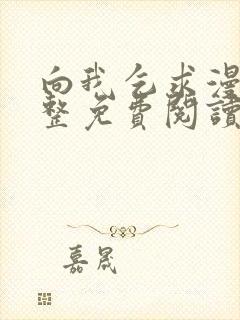 向我乞求漫
整免費閱讀
嘉晟